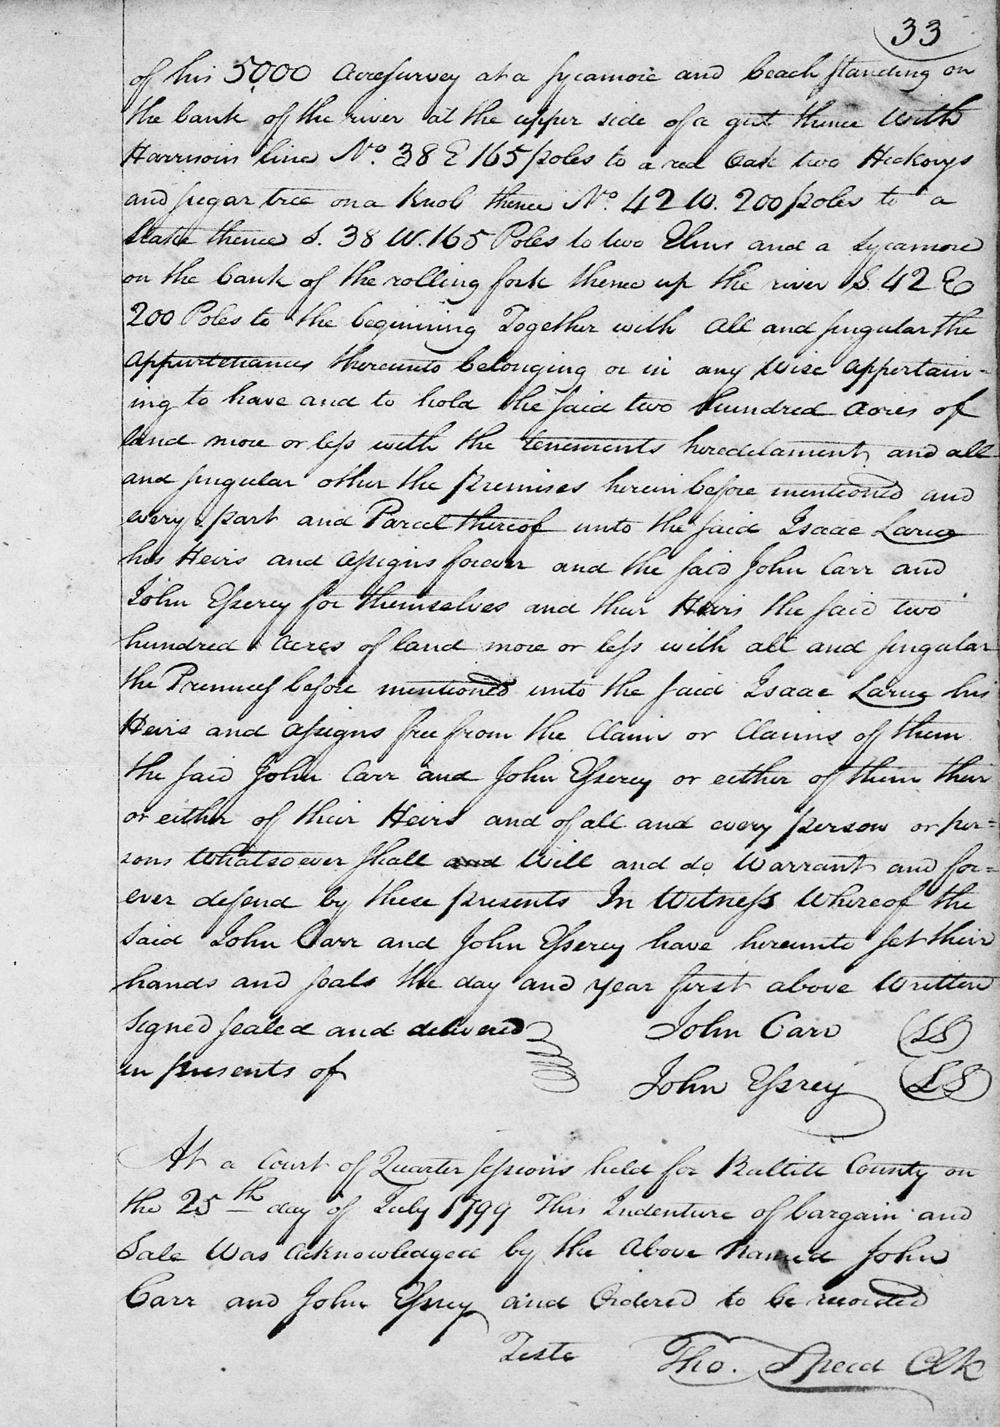 33
of his 5000 Acre survey at a sycamore and beach standing on
the bank of the river at the upper side of a gut thence With
Harrisons line No. 38 E 165 poles to a red Oak two Hickorys
and sugar tree on a Knob thence No. 42 W. 200 poles to a
Stake thence S. 38 W. 165 Poles to two Elms and a Sycamore
on the bank of the rolling fork thence up the river S. 42 E
200 Poles to the beginning Together with all and singular the
Appurtenances thereunto belonging or in any Wise Appertain-
ing to have and to hold the said two hundred Acres of
land more or less with the tenements heredetament and all
and singular other the premises herein before mentioned and
every part and Parcel thereof unto the said Isaac Larue
his Heirs and assigns forever and the said John Carr and
John Esserey for themselves and their Heirs the said two
hundred Acres of land more or less with all and singular
the Premises before mentioned unto the said Isaac Larue his
Heirs and assigns free from the Claim or Claims of them
the said John Carr and John Esserey or either of them their
or either of their Heirs and of all and every person or per=
sons Whatsoever shall and Will and do Warrant and for=
ever defend by these presents In Witness Whereof the
said John Carr and John Esserey have hereunto set their
hands and seals the day and year first above Written
Signed sealed and delivered John Carr (LS)
in presents of John Essrey (LS)
At a Court of Quarter sessions held for Bullitt County on
the 25th day of July 1799 This Indenture of bargain and
Sale Was Acknowledged by the Above Named John
Carr and John Essrey and Ordered to be recorded
Teste Tho. Speed Clk